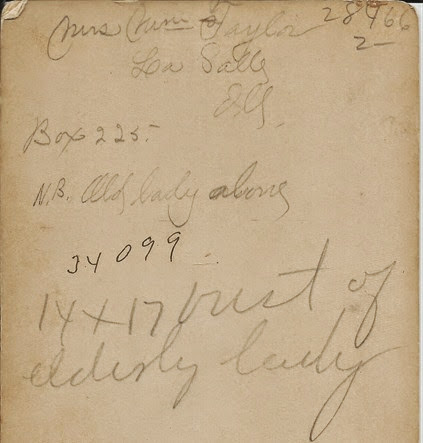 Mrs Mini Taylor 28466
2-
La Salle
Ills.
Box 225.
N.B. Old lady alone
34099
14x17 bust of
elderly lady